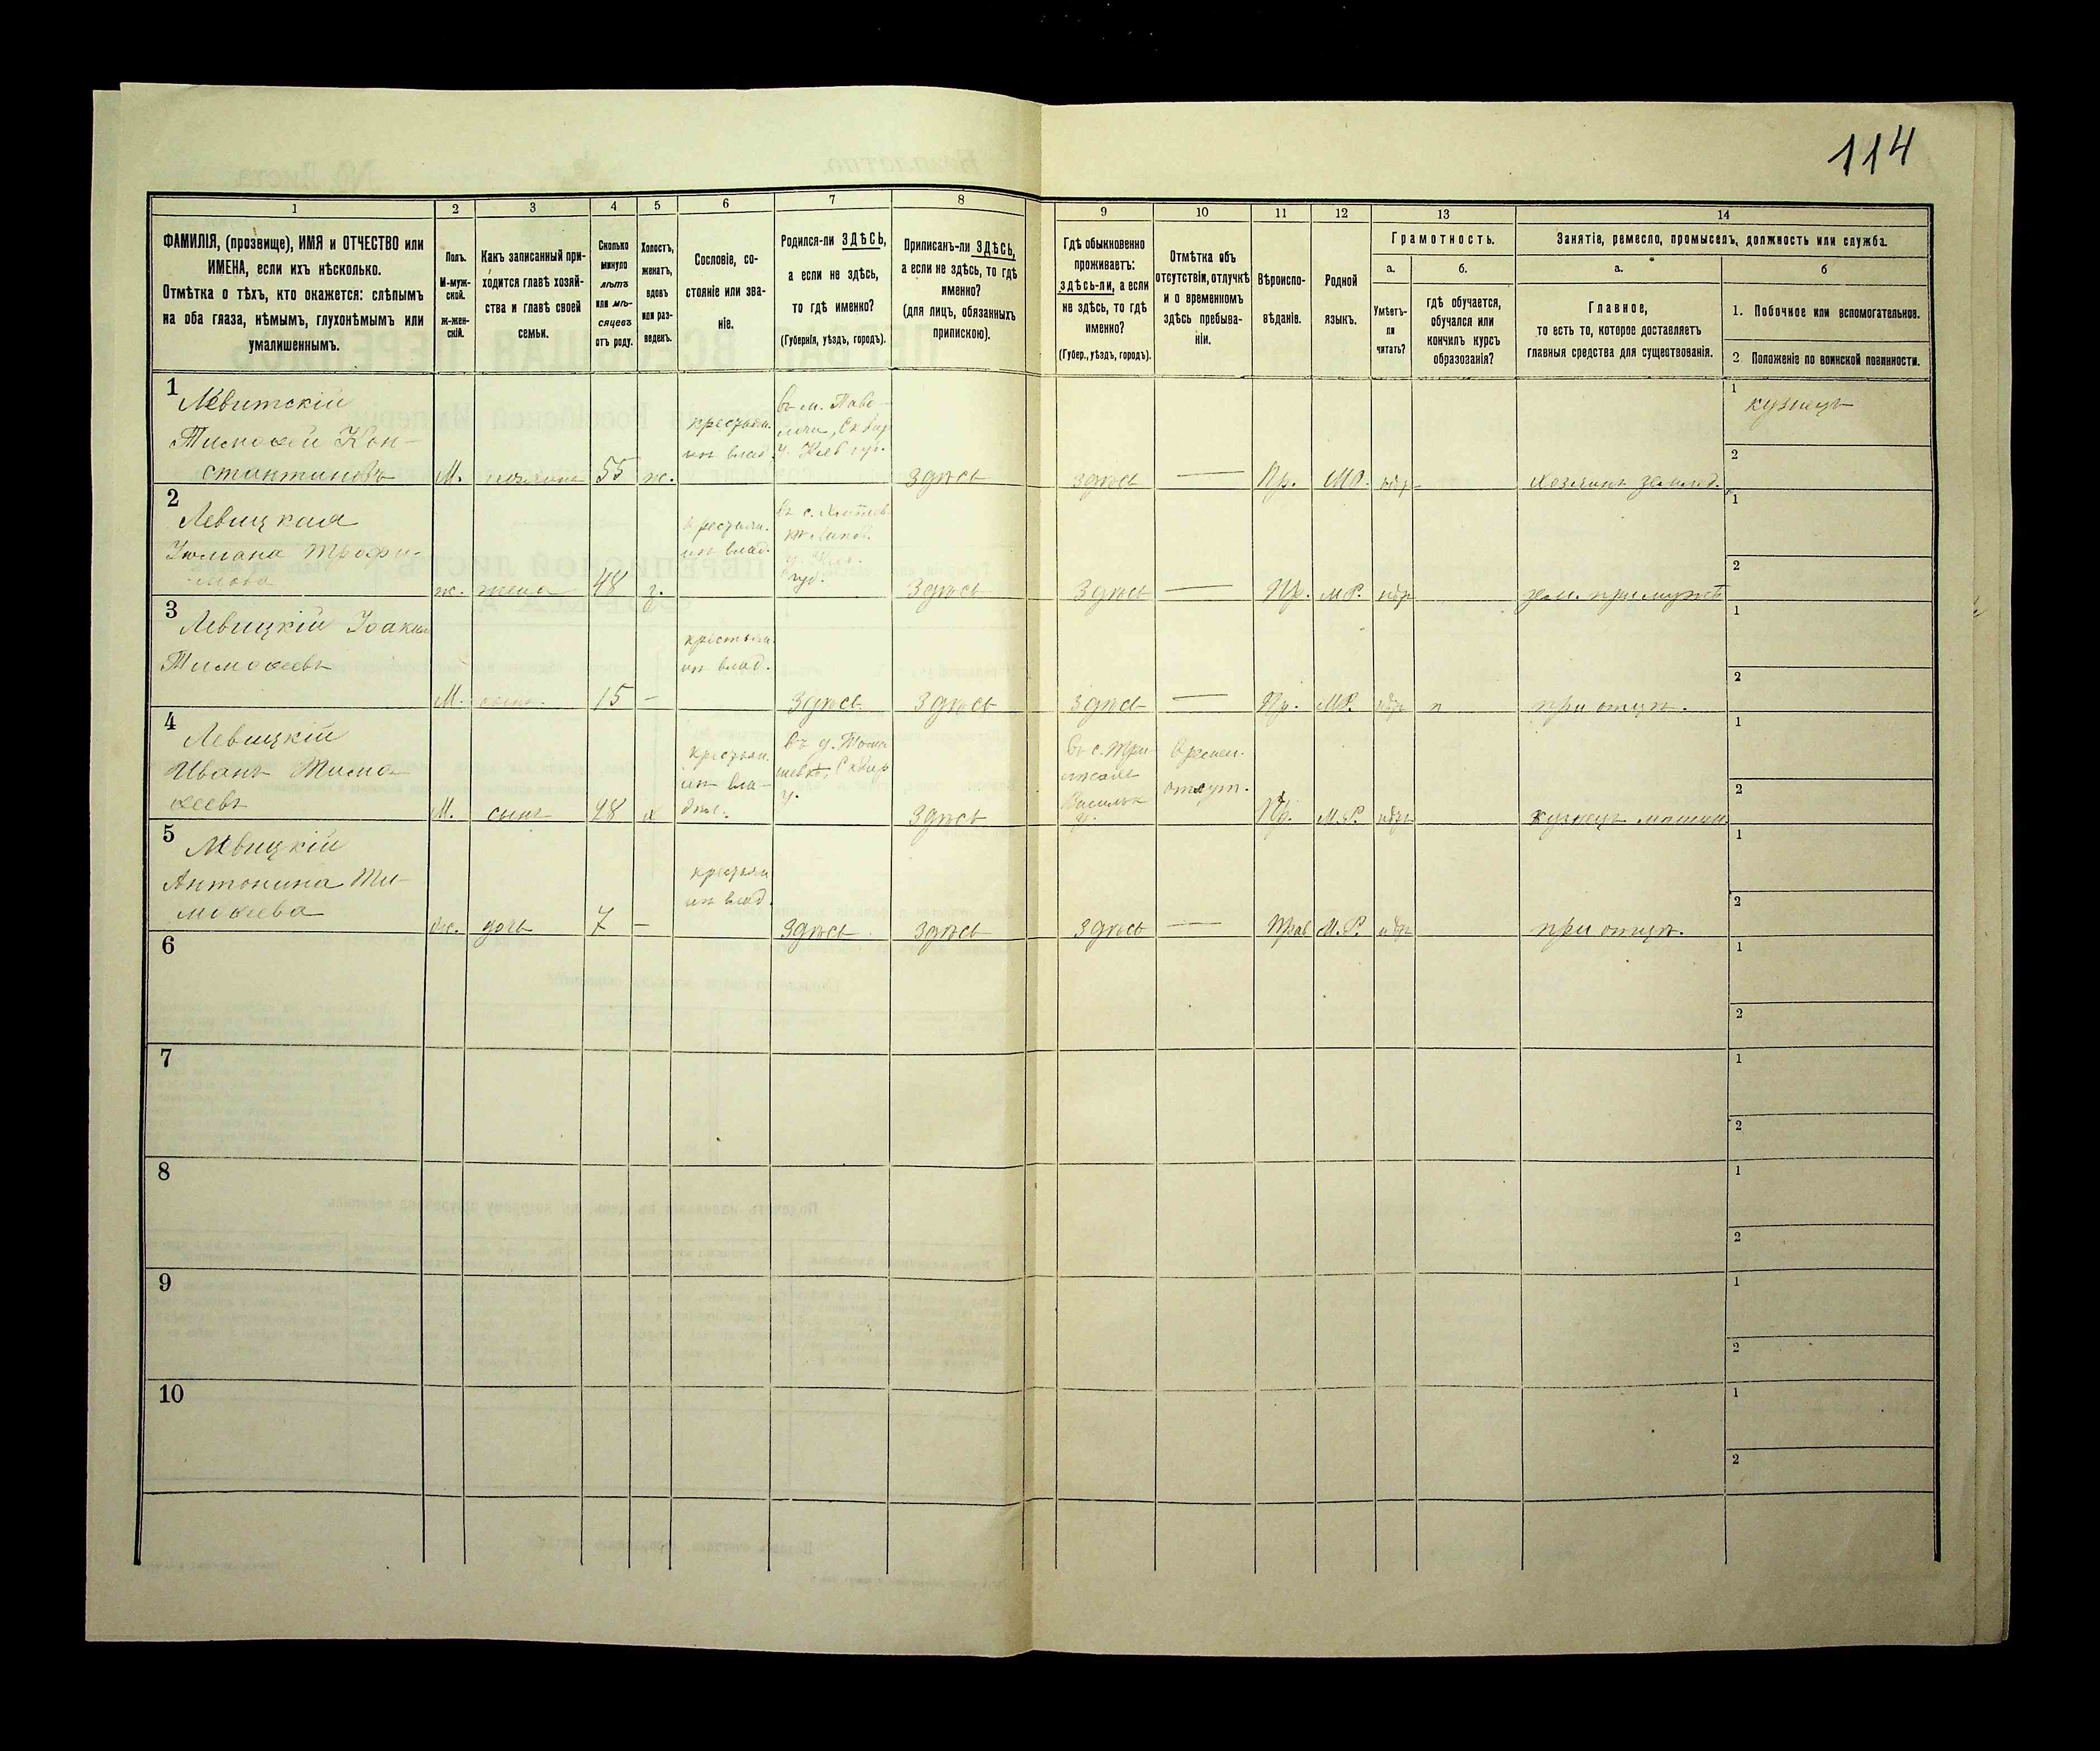 114
1
2
3
4
5
6
7
8
9
10
11
12
13
14
ФАМИЛІЯ, (прозвище), ИМЯ и ОТЧЕСТВО или
ИМЕНА, если ихъ нѣсколько.
Отмѣтка о тѣхъ, кто окажется: слѣпымъ
на оба глаза, нѣмымъ, глухонѣмымъ или
умалишеннымъ.
Полъ.
М-муж-
ской.
Ж-жен-
скій.
Какъ записанный при-
ходится главѣ хозяй-
ства и главѣ своей
семьи.
Сколько
минуло
лѣтъ
или мѣ-
сяцевъ
отъ роду.
Холостъ,
женатъ,
вдовъ
или раз-
веденъ.
Сословіе, со-
стояніе или зва-
ніе.
Родился-ли ЗДѢСЬ,
а если не здѣсь,
то гдѣ именно?
(Губернія, уѣздъ, городъ).
Приписанъ-ли ЗДѢСЬ,
а если не здѣсь, то гдѣ
именно?
(для лицъ, обязанныхъ
припискою).
Гдѣ обыкновенно
проживаетъ:
здѣсь-ли, а если
не здѣсь, то гдѣ
именно?
(Губер., уѣздъ, городъ).
Отмѣтка объ
отсутствіи, отлучкѣ
и о временномъ
здѣсь пребыва-
ніи.
Вѣроиспо-
вѣданіе.
Родной
языкъ.
Грамотность.
а.
б.
Умѣетъ-
ли
читать?
гдѣ обучается,
обучался или
кончилъ курсъ
образованія?
Занятіе, ремесло, промыселъ, должность или служба.
а.
б
Главное,
то есть то, которое доставляетъ
главныя средства для существованія.
1. Побочное или вспомогательное.
2 Положеніе по воинской повинности.
1
Левитскій
Тимоѳей Кон-
стантиновъ
М.
55
ж.
крестьян.
изъ влад.
въ м. Паво-
лочи, Сквир
у. Кіев губ.
здѣсь
здѣсь
—
Пр.
МР.
нѣт
Хозяинъ землед.
1
кузнецъ
2
2
Левицкая
Трофи-
мова
ж.
жена
48
з.
крестьян.
изъ влад.
въ с.
губ.
Здѣсь
Здѣсь
—
Пр.
М.Р.
нѣт
зем. при мужѣ
1
2
3
Левицкій Іоаким
Тимоѳеевъ
М.
сынъ
15
—
крестьян.
изъ влад.
Здѣсь
Здѣсь
здѣсь
—
Пр.
МР.
нѣт
при отцѣ.
1
2
4
Левицкій
Иванъ Тимо
ѳеевъ
М.
сынъ
х
крестьян.
изъ вла-
дѣл.
въ д. Тома
шевкѣ, Сквир
у.
Здѣсь
въ с. Три-
лѣсахъ
Васильк
у.
Времен.
отсут.
Пр.
М.Р.
нѣт
кузнецъ
1
2
5
Левицкій
Антонина Ти-
моѳеева
ж.
дочь
7
—
крестьян
изъ влад.
Здѣсь
Здѣсь
здѣсь
—
Прав
М.Р.
нѣт
при отцѣ.
1
2
6
1
2
7
1
2
8
1
2
9
1
2
10
1
2